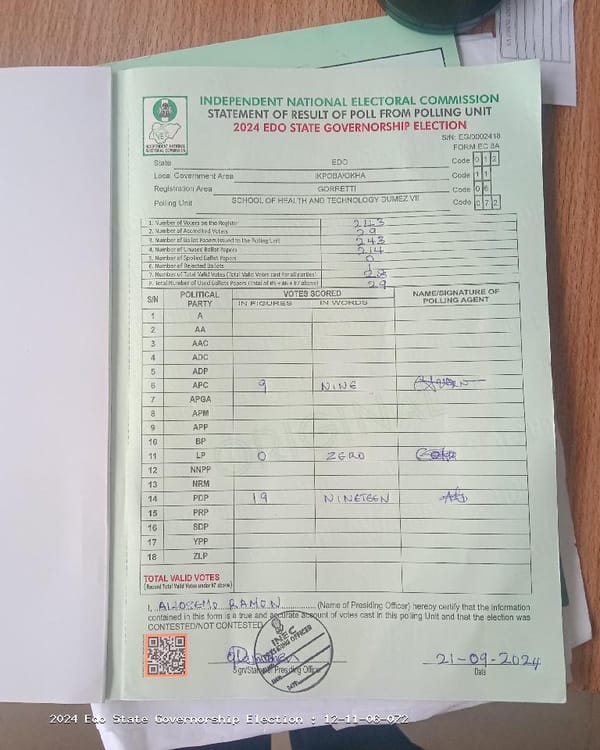 INDEPENDENT NATIONAL ELECTORAL COMMISSION
STATEMENT OF RESULT OF POLL FROM POLLING UNIT
2024 EDO STATE GOVERNORSHIP ELECTION
INDEPENDENT NATIONAL ELECTORAL COMMISSION
S/N: EG/0002418
FORM EC 8A
State EDO Code 0 1 2
Local Government Area IKPOBA/OKHA Code 1 1
Registration Area GORRETTI Code 0 6
Polling Unit SCHOOL OF HEALTH AND TECHNOLOGY DUMEZ VII Code 0 7 2
1. Number of Voters on the Register 243
2. Number of Accredited Voters 29
3. Number of Ballot Papers Issued to the Polling Unit 243
4. Number of Unused Ballot Papers 214
5. Number of Spoiled Ballot Papers 0
6. Number of Rejected Ballots
7. Number of Total Valid Votes (Total Valid Votes cast for all parties) 28
8. Total Number of Used Ballots Papers (Total of #5 + #6 + #7 above) 29
S/N POLITICAL PARTY VOTES SCORED NAME/SIGNATURE OF POLLING AGENT
IN FIGURES IN WORDS
1 A
2 AA
3 AAC
4 ADC
5 ADP
6 APC 9 NINE
7 APGA
8 APM
9 APP
10 BP
11 LP 0 ZERO
12 NNPP
13 NRM
14 PDP 19 NINETEEN
15 PRP
16 SDP
17 YPP
18 ZLP
TOTAL VALID VOTES
(Record Total Valid Votes under #7 above)
I, RAMON (Name of Presiding Officer) hereby certify that the information
contained in this form is a true and accurate account of votes cast in this polling Unit and that the election was
CONTESTED/NOT CONTESTED
INEC
PRESIDING OFFICER
21-09-2024
Sign/Stamp of Presiding Officer Date
2024 Edo State Governorship Election : 12-11-06-072